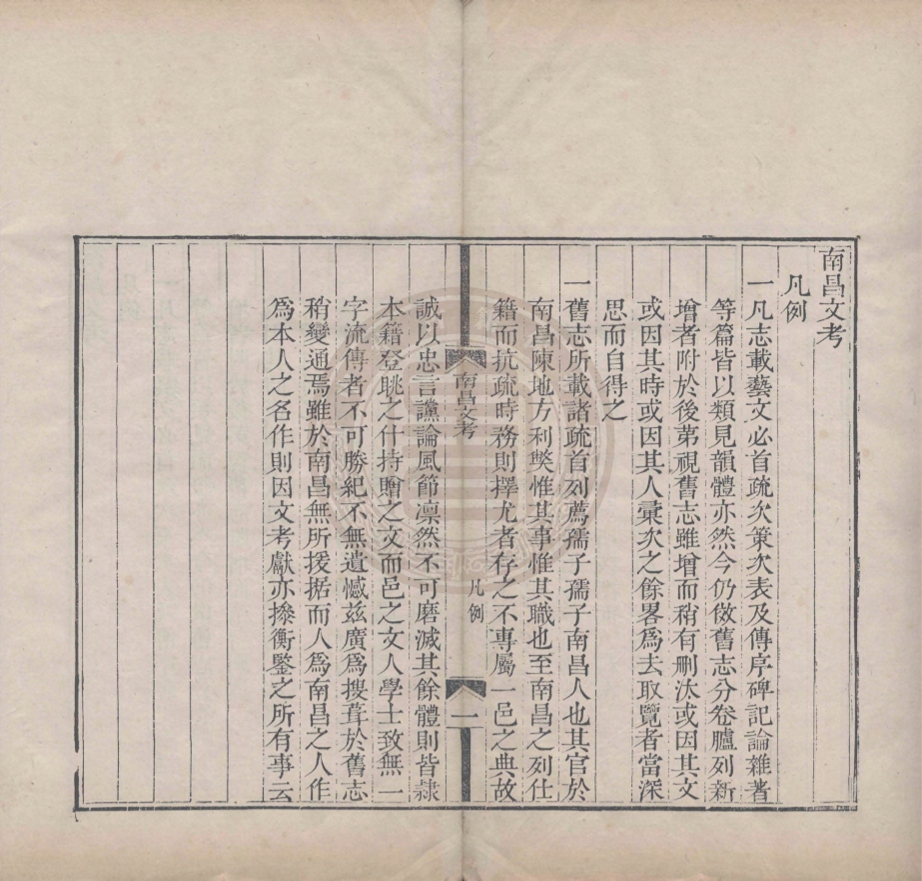 南昌文考
凡例
一凡志載藝文必首疏次策次表及傳序碑記論雜著
等篇皆以類見韻體亦然今仍倣舊志分卷臚列新
增者附於後第視舊志雖增而稍有刪汰或因其文
或因其時或因其人彙次之餘畧爲去取覽者當深
思而自得之
一舊志所載諸疏首列薦孺子孺子南昌人也其官於
南昌陳地方利獘惟其事惟其職也至南昌之列仕
籍而抗疏時務則擇尤者存之不專屬一邑之典故
南昌文考
凡例
一
誠以忠言讜論風節凛然不可磨滅其餘體則皆隸
本籍登眺之什持贈之文而邑之文人學士致無一
字流傳者不可勝紀不無遺憾兹廣爲搜葺於舊志
稍變通焉雖於南昌無所援据而人爲南昌之人作
爲本人之名作則因文考獻亦摻衡鑒之所有事云